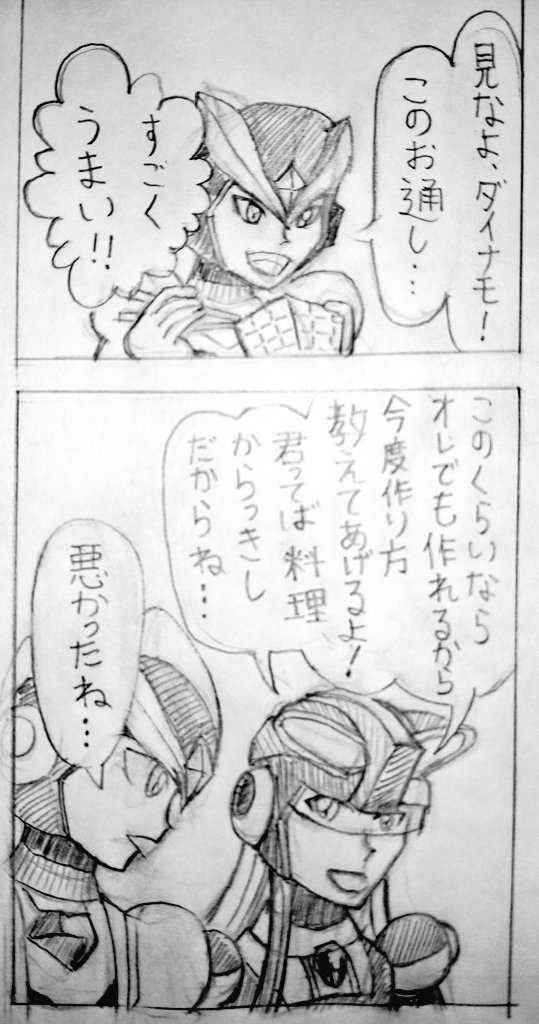 見なよ、ダイナモ!
このお通し…
すごく
うまい!!
このくらいなら
オレでも作れるから
今度作り方
教えてあげるよ!
君ってば料理
からっきし
だからね…
悪かったね…